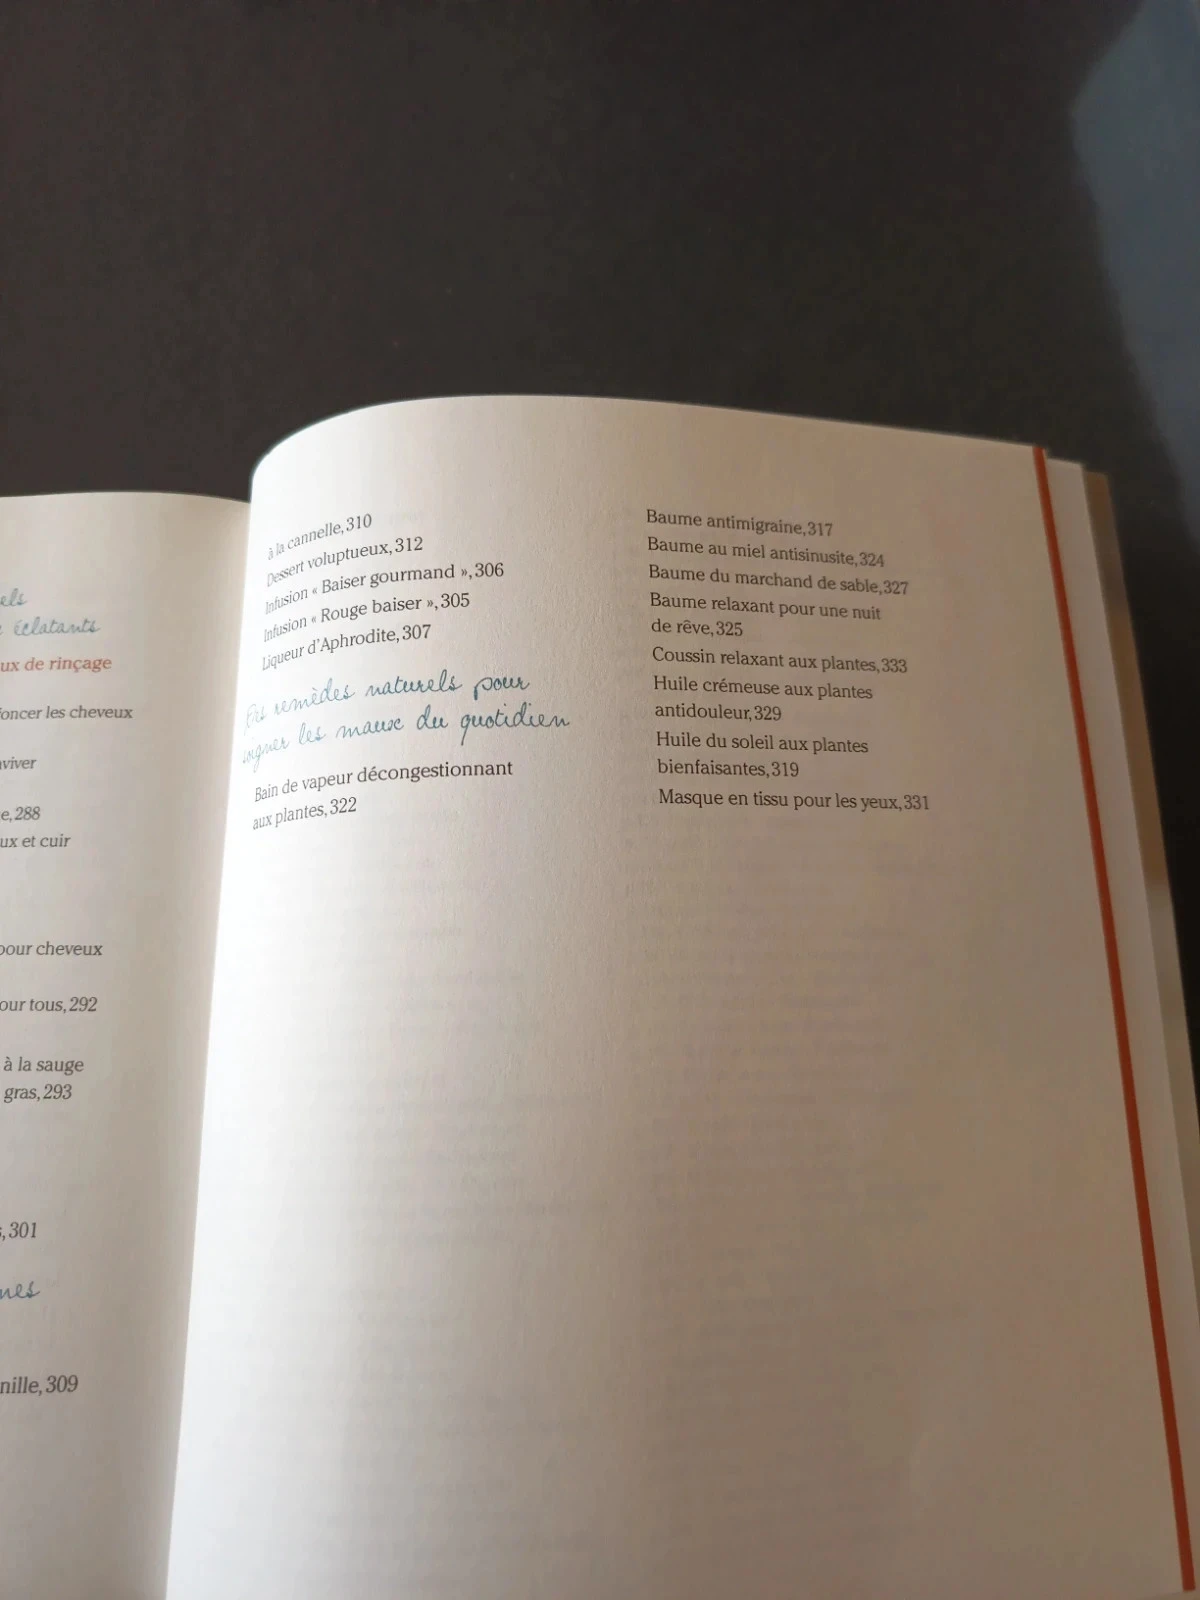 els
éclatants
ux de rinçage
foncer les cheveux
viver
e, 288
ux et cuir
pour cheveux
our tous, 292
à la sauge
gras, 293
s, 301
nes
nille, 309
à la cannelle, 310
Dessert voluptueux, 312
Infusion « Baiser gourmand », 306
Infusion « Rouge baiser », 305
Liqueur d'Aphrodite, 307
Des remèdes naturels pour
soigner les maux du quotidien
Bain de vapeur décongestionnant
aux plantes, 322
Baume antimigraine, 317
Baume au miel antisinusite, 324
Baume du marchand de sable, 327
Baume relaxant pour une nuit
de rêve, 325
Coussin relaxant aux plantes, 333
Huile crémeuse aux plantes
antidouleur, 329
Huile du soleil aux plantes
bienfaisantes, 319
Masque en tissu pour les yeux, 331